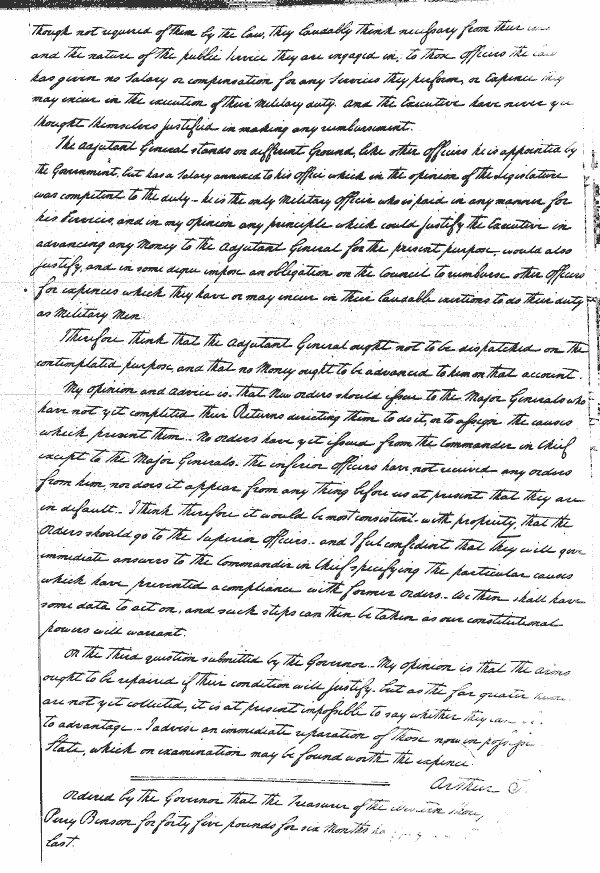 though not required of them by the Law, they laudably think necessary from their
and the nature of the public Service they are engaged in, to those Officers the Law
has given no Salary or compensation for any Services they perform, or Expence they
may incur in the execution of their Military duty and the Executive have never yet
thought themselves justified in making any reimbursement.
The Adjutant General stands on different Ground, like other Officers he is appointed by
the Government, but has a Salary annexed to his Office which in the opinion of the Legislature
was competent to the duty - he is the only Military Officer who is paid in any manner for
his Services, and in my opinion any principle which could justify the Executive in
advancing any Money to the Adjutant General for the present purpose, would also
justify, and in some degree impose an obligation on the Council to reimburse other Officers
for expences which they have or may incur in their laudable exertions to do their duty
as Military Men.
I therefore think that the Adjutant General ought not to be dispatched on the
contemplated purpose, and that no Money ought to be advanced to him on that account.
My opinion and advice is, that New orders should issue to the Major Generals who
have not yet completed their Returns directing them to do it, or to assign the causes
which prevent them.. No orders have yet issued from the Commander in Chief
except to the Major Generals. The inferior officers have not received any orders
from him, nor does it appear from any thing before us at present that they are
in default.. I think therefore it would be most consistent with propriety, that the
Orders should go to the Superior Officers.. and I feel confident that they will give
immediate answers to the Commander in Chief specifying the particular causes
which have prevented a compliance with former orders.. We then shall have
some data to act on, and such steps can then be taken as our constitutional
powers will warrant.
On the third question submitted by the Governor.. My opinion is that the arms
ought to be repaired if their condition will justify- but as the far greater
are not yet collected, it is at present impossible to say whether they
to advantage.. I advise an immediate reparation of those now in
State, which on examination may be found worth the expence.
Arthur S.
Ordered by the Governor that the Treasurer of the Western Shore,
Perry Benson for forty five pounds for six Months
last.